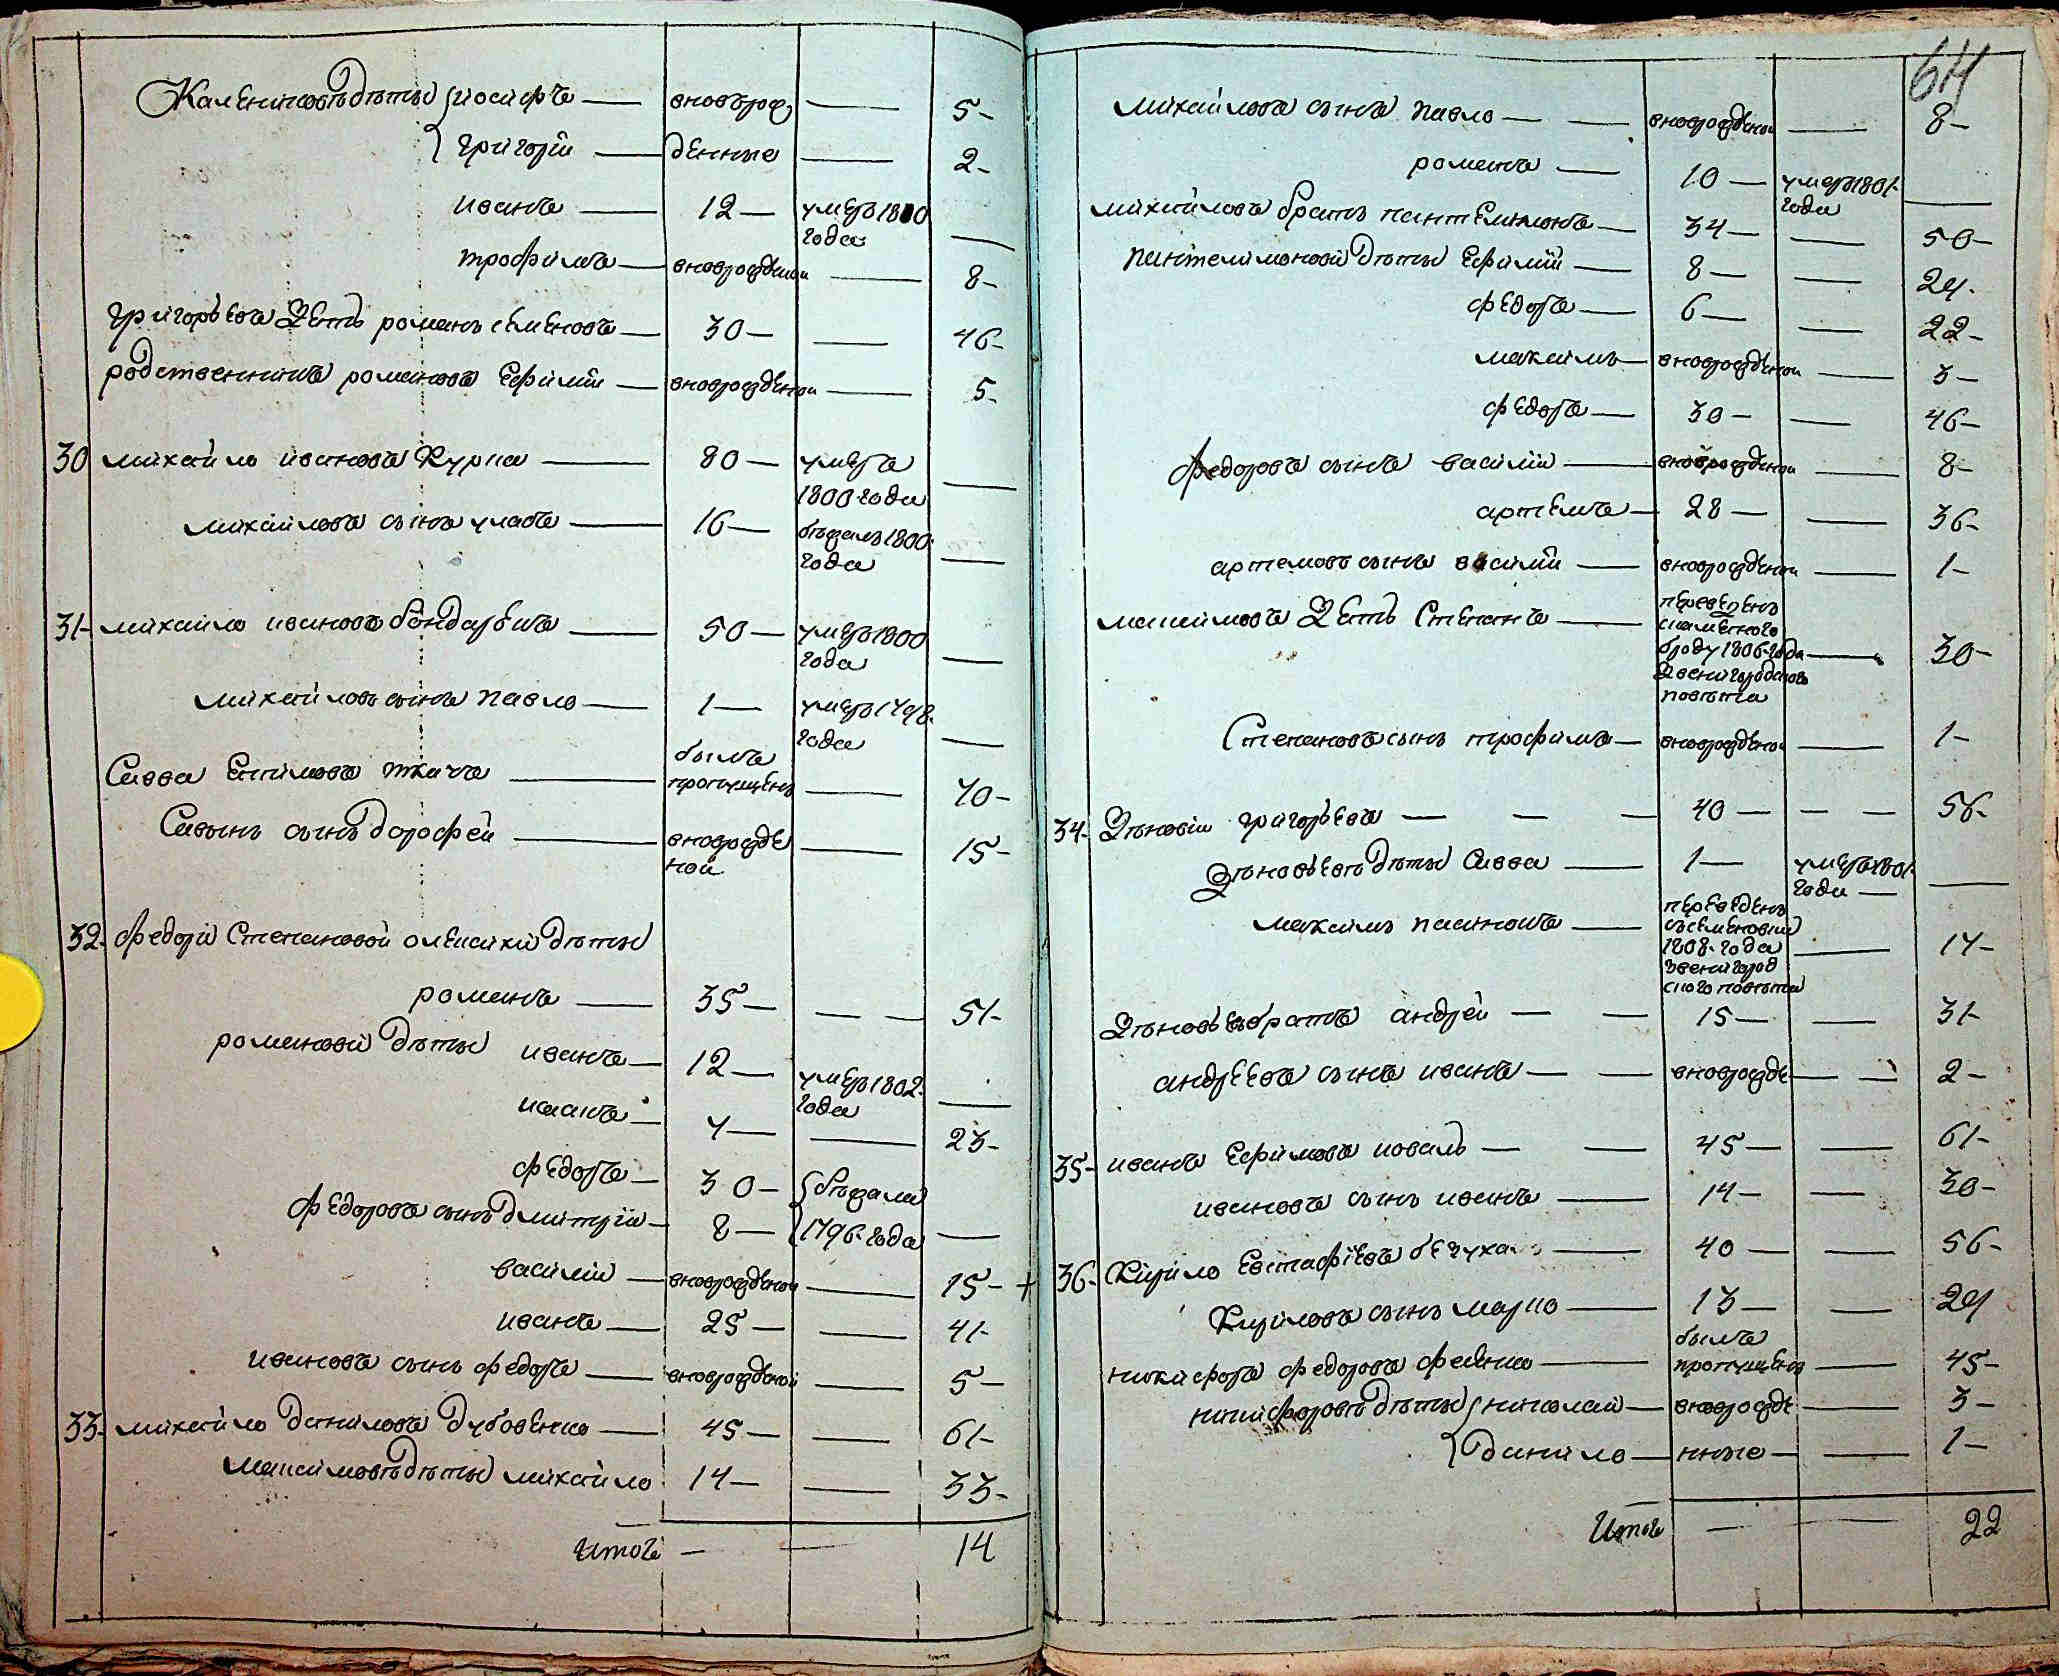 Калениковы дѣты { иосифъ — вновърож — 5-
{ григорій — денные — 2-
иванъ — 12 — умеръ 1800 года —
трофимъ — вноврожденой — 8-
григорьевъ Зеть романъ семеновъ — 30 — — 46-
родственникъ романовъ Ефимій — вноврожденой — 5-
30 михайло ивановъ Курка — 80 — умеръ
1800 года —
михайловъ сынъ уласъ — 16 — бѣжалъ 1800
года —
31- михайло ивановъ бондарь — 50 — умеръ 1800
года —
михайловъ сынъ павло — 1 — умеръ 1798
года —
Савва ткачъ — былъ
пропущенъ — 40-
Савынъ сынъ дорофей — вноврожде
ной — 15-
32. федоры Степановой дѣты
романъ — 35 — — — 51-
романовы дѣты иванъ — 12 — умеръ 1802
года —
иванъ — 7 — — 23-
федоръ — 30 — { бѣжали
федоровъ сынъ дмитрій — 8 — { 1796 года —
василій — вноврожденой — 15 - +
иванъ — 25 — — 41-
ивановъ сынъ федоръ — вноврожденой — 5 —
33- михайло даниловъ дубовенко — 45 — — 61-
дѣты михайло 14 — — 33-
Итого — — 14
64
михайловъ сынъ павло — — вноврожденой — 8-
романъ — 10 — умеръ 1801
года —
михайловъ братъ пантелимонъ — 34 — — 50-
пантелимоновы дѣты Ефимій — 8 — — 24-
федоръ — 6 — — 22-
максимъ — вноврожденой — 3-
федоръ — 30 — — 46-
федоровъ сынъ василій — вноврожденой — 8-
артемъ — 28 — — 36-
артемовъ сынъ василій — вноврожденой — 1-
Зеть Степанъ — переведенъ
броду 1806 года — 30-
Звенигородского
повѣта
Степановъ сынъ трофимъ — вноврожденой — 1-
34- Зѣновій григорьевъ — — — 40 — — — 56-
Зѣновьевы дѣты Савва — 1 — умеръ 1801
года —
максимъ пасинокъ — переведенъ
1808 года — 14-
Звенигород
ского повѣта
Зѣновьевъ братъ андрей — — 15 — — 31-
андреевъ сынъ иванъ — — вноврожде — — 2-
35- иванъ Ефимовъ коваль — — 45 — — 61-
ивановъ сынъ иванъ — 14 — — 30-
36- Кирило Евстафіевъ — 40 — — 56-
Кириловъ сынъ марко — 13 — — 29
никифоръ федоровъ — былъ
пропущенъ — 45-
никифоровы дѣты { николай — вноврожде — 3-
{ данило — нные — — 1-
Итого — — 22